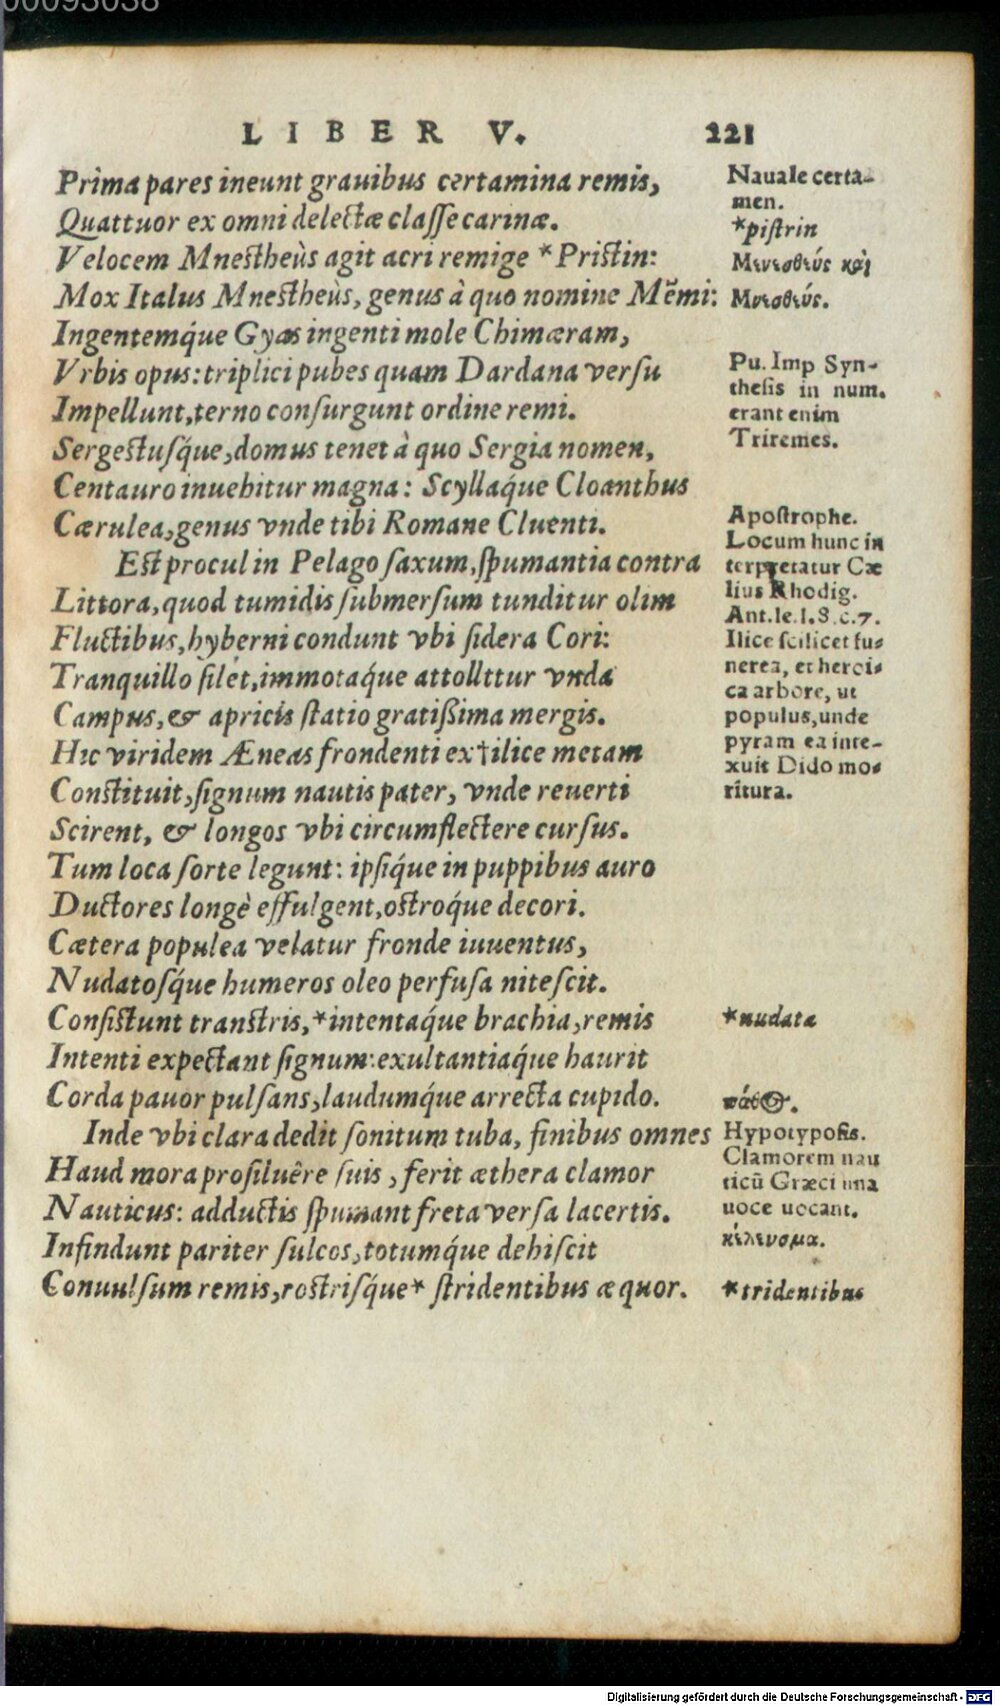 00093038
LIBER V. 221
Prima pares ineunt grauibus certamina remis,
Quattuor ex omni delectæ classe carinæ.
Velocem Mnestheùs agit acri remige *Pristin:
Mox Italus Mnestheùs, genus à quo nomine Mẽmi:
Ingentemq́ue Gyas ingenti mole Chimæram,
Vrbis opus: triplici pubes quam Dardana versu
Impellunt, terno consurgunt ordine remi.
Sergestusq́ue, domus tenet à quo Sergia nomen,
Centauro inuehitur magna: Scyllaq́ue Cloanthus
Cærulea, genus vnde tibi Romane Cluenti.
Est procul in Pelago saxum, spumantia contra
Littora, quod tumidis submersum tunditur olim
Fluctibus, hyberni condunt vbi sidera Cori:
Tranquillo silet, immotaq́ue attollttur vnda
Campus, & apricis statio gratißima mergis.
Hic viridem Æneas frondenti ex †ilice metam
Constituit, signum nautis pater, vnde reuerti
Scirent, & longos vbi circumflectere cursus.
Tum loca sorte legunt: ipsiq́ue in puppibus auro
Ductores longè effulgent, ostroq́ue decori.
Cætera populea velatur fronde iuuentus,
Nudatosq́ue humeros oleo perfusa nitescit.
Considunt transtris, *intentaq́ue brachia, remis
Intenti expectant signum: exultantiaq́ue haurit
Corda pavor pulsans, laudumq́ue arrecta cupido.
Inde vbi clara dedit sonitum tuba, finibus omnes
Haud mora prosiluêre suis, ferit æthera clamor
Nauticus: adductis spumant freta versa lacertis.
Infindunt pariter sulcos, totumq́ue dehiscit
Conuulsum remis, rostrisq́ue * stridentibus æquor.
Nauale certa-
men.
*pistrin
Μενεσθεύς καὶ
Μνεσθεύς.
Pu. Imp Syn-
thesis in num.
erant enim
Triremes.
Apostrophe.
Locum hunc in
terpretatur Cæ
lius Rhodig.
Ant. le. l. 8. c. 7.
Ilice scilicet fu-
nerea, et heroi-
ca arbore, ut
populus, unde
pyram ea inte-
xuit Dido mo-
ritura.
*nudata
πάθος.
Hypotyposis.
Clamorem nau
ticũ Græci una
uoce uocant.
κέλευσμα.
*tridentibus
Digitalisierung gefördert durch die Deutsche Forschungsgemeinschaft - DFG